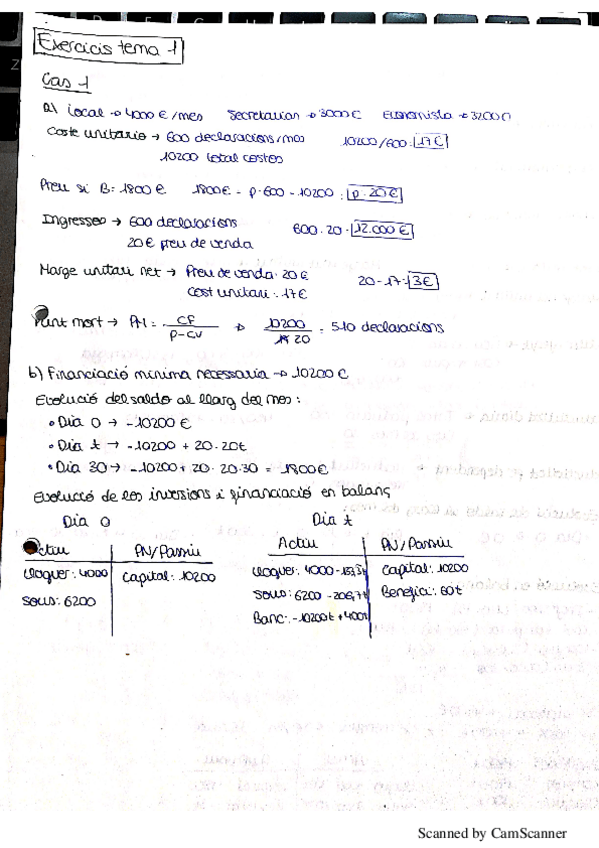 Exercicis tema 1
Cas 1
a) Local → 4000 €/mes Secretarian → 3000 € Economista → 3200 €
Coste unitario → 600 declaracions/mes 10200/600 = 17 €
10200 total costos
Preu si B = 1800 € 1800 € = p·600 - 10200 ; p = 20 €
Ingressos → 600 declaracions 600 · 20 = 12.000 €
20 € preu de venda
Marge unitari net → Preu de venda = 20 € 20 - 17 = 3 €
Cost unitari = 17 €
Punt mort → PM = CF / P - CV → 10200 / 20 = 510 declaracions
b) Financiació mínima necessaria → 10200 €
Evolució del saldo al llarg del mes :
• Dia 0 → -10200 €
• Dia t → -10200 + 20 · 20t
• Dia 30 → -10200 + 20 · 20 · 30 = 1800 €
Evolució de les inversions i financiació en balanç
Dia 0 Dia t
Actiu PN/Passiu Actiu PN/Passiu
Lloguer: 4000 Capital: 10200 Lloguer: 4000 - 133,3t Capital: 10200
Sous: 6200 Sous: 6200 - 206,7t Benefici: 60t
Banc: -10200t + 400t
Scanned by CamScanner